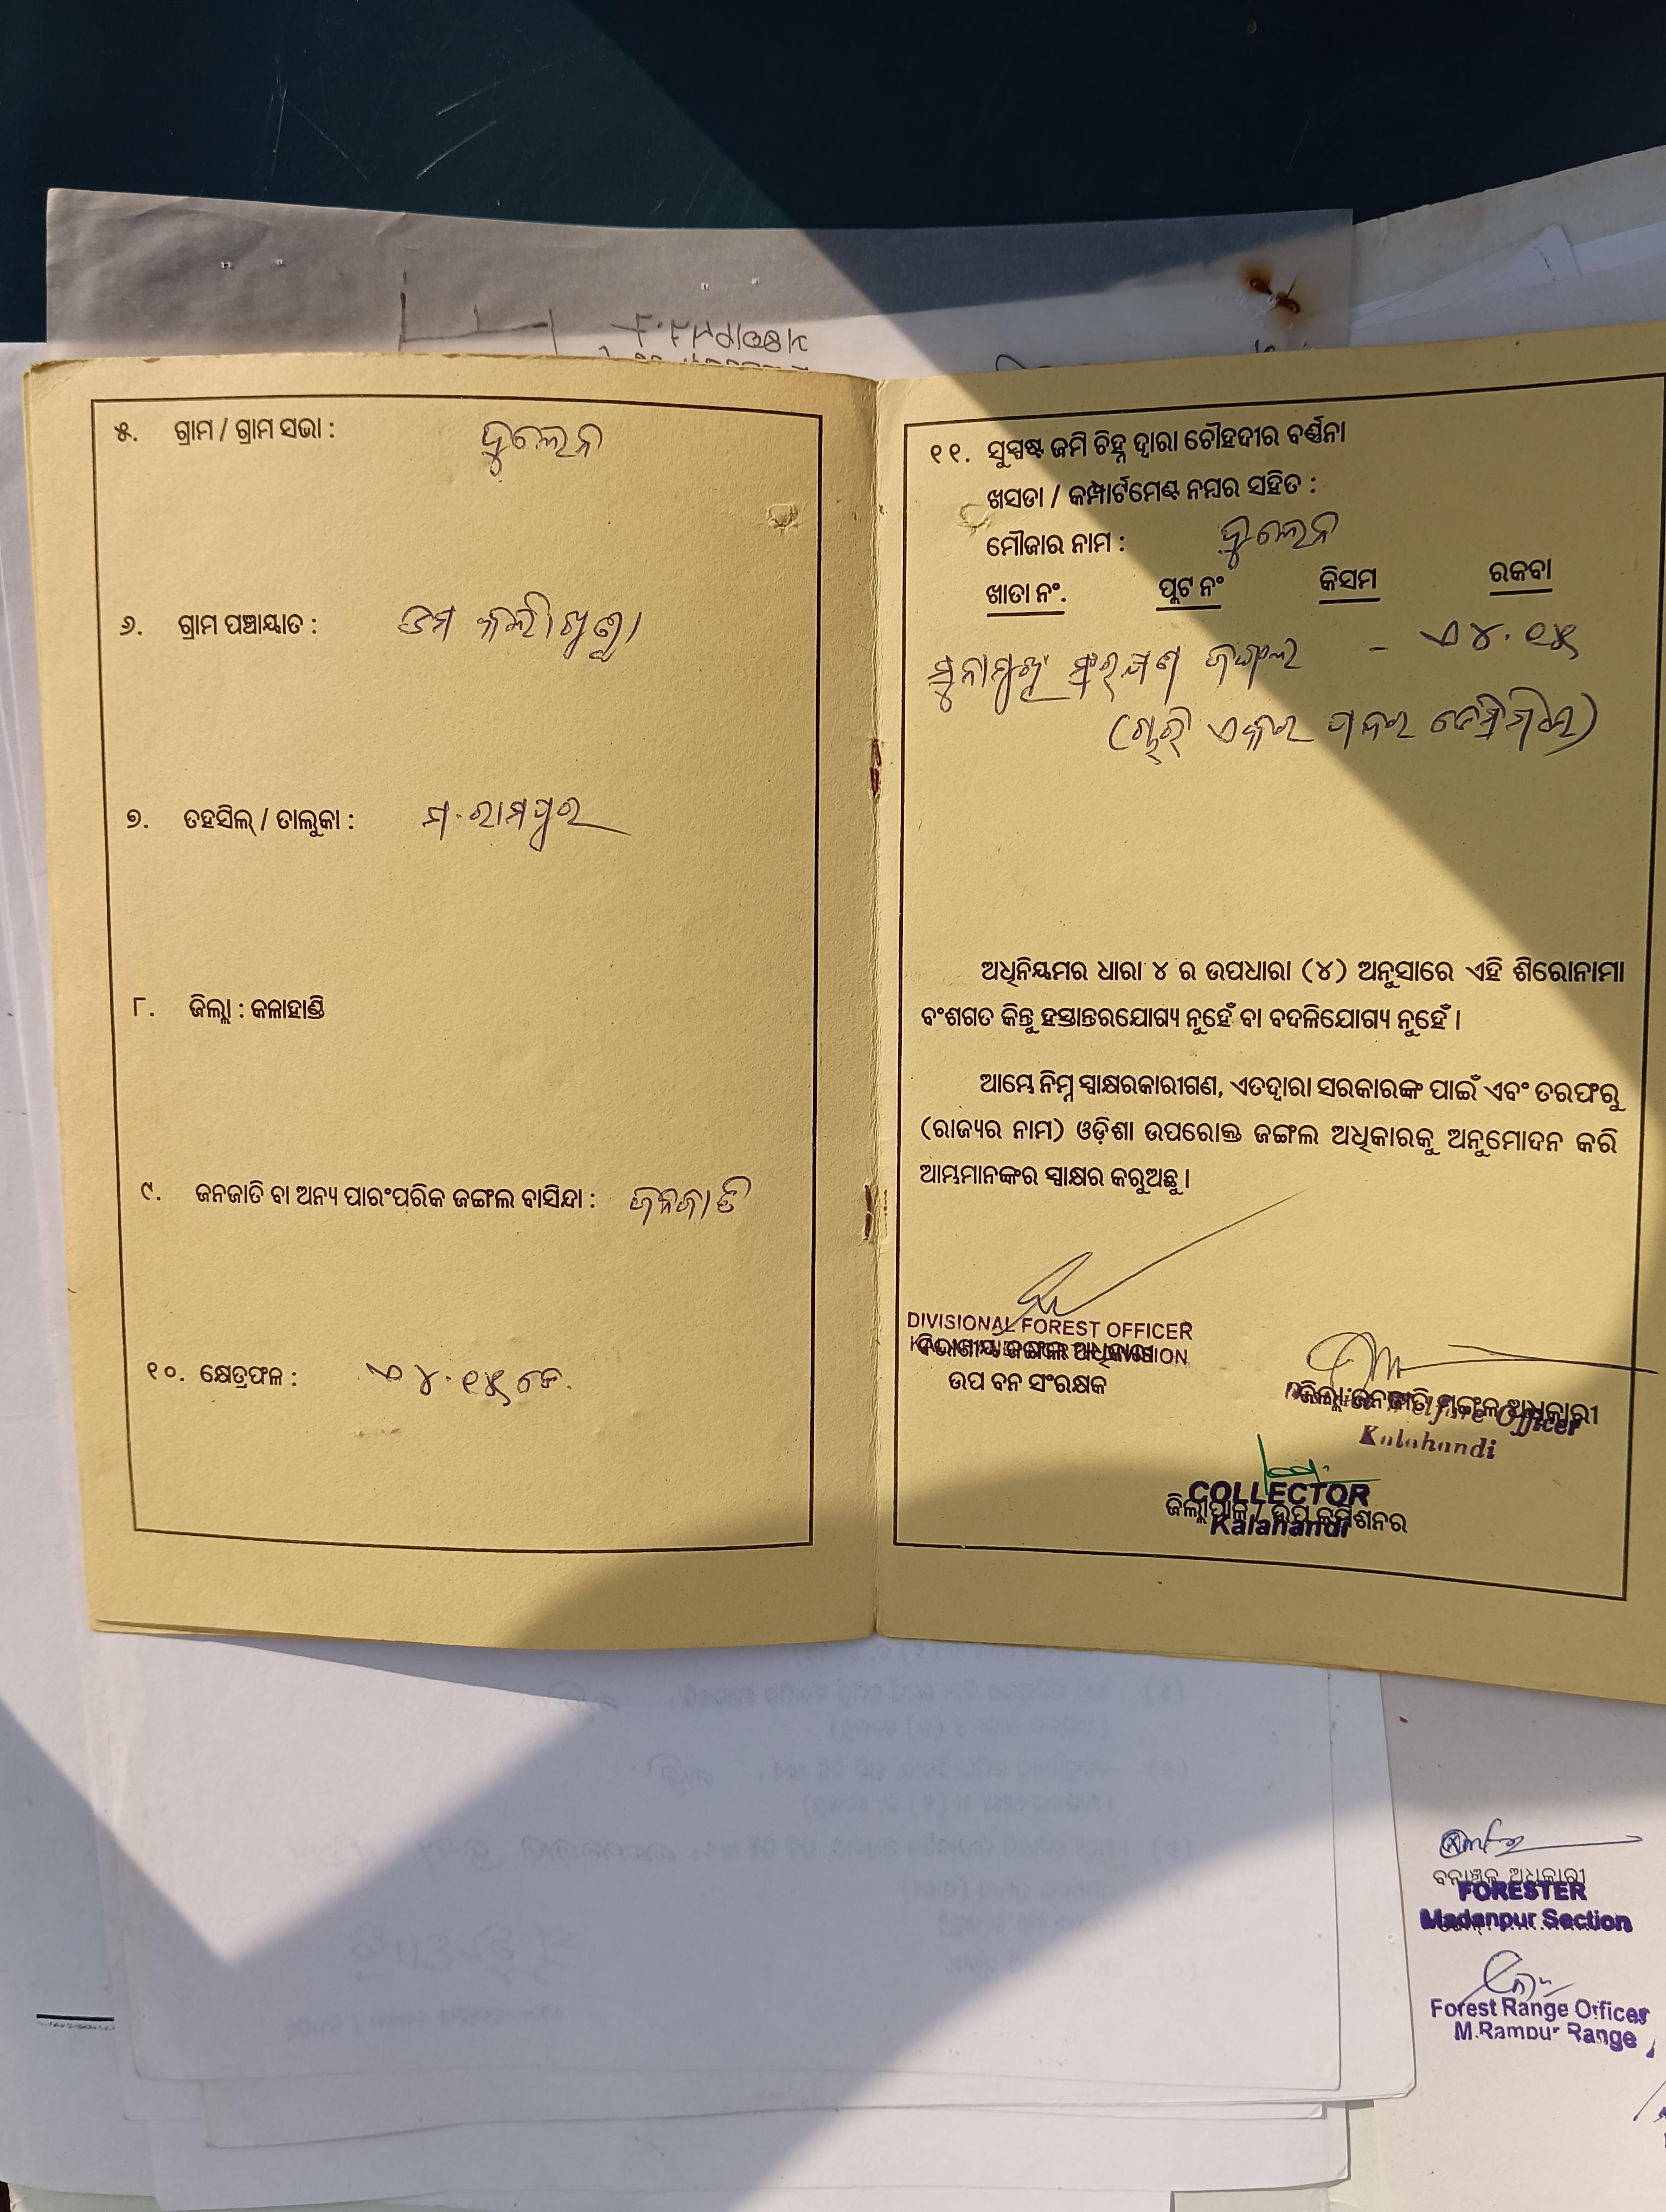 ୫. ଗ୍ରାମ / ଗ୍ରାମ ସଭା : ଦୁଲେନ
୬. ଗ୍ରାମ ପଞ୍ଚାୟାତ :
୭. ତହସିଲ୍ / ତାଲୁକା : ମ.ରାମପୁର
୮. ଜିଲ୍ଲା : କଳାହାଣ୍ଡି
୯. ଜନଜାତି ବା ଅନ୍ୟ ପାରଂପରିକ ଜଙ୍ଗଲ ବାସିନ୍ଦା : ଜନଜାତି
୧୦. କ୍ଷେତ୍ରଫଳ : ଏ ୪.୧୫ ଡେ.
୧୧. ସୁସ୍ପଷ୍ଟ ଜମି ଚିହ୍ନ ଦ୍ୱାରା ଚୌହଦୀର ବର୍ଣ୍ଣନା
ଖସଡା / କମ୍ପାର୍ଟମେଣ୍ଟ ନମ୍ବର ସହିତ :
ମୌଜାର ନାମ : ଦୁଲେନ
ଖାତା ନଂ. ପ୍ଲଟ ନଂ କିସମ ରକବା
ଜଙ୍ଗଲ - ଏ ୪.୧୫
(ଚାରି ଏକର ପନ୍ଦର ଡେସିମିଲ)
ଅଧିନିୟମର ଧାରା ୪ ର ଉପଧାରା (୪) ଅନୁସାରେ ଏହି ଶିରୋନାମା
ବଂଶଗତ କିନ୍ତୁ ହସ୍ତାନ୍ତରଯୋଗ୍ୟ ନୁହେଁ ବା ବଦଳିଯୋଗ୍ୟ ନୁହେଁ ।
ଆମ୍ଭେ ନିମ୍ନ ସ୍ୱାକ୍ଷରକାରୀଗଣ, ଏତଦ୍ଦ୍ୱାରା ସରକାରଙ୍କ ପାଇଁ ଏବଂ ତରଫରୁ
(ରାଜ୍ୟର ନାମ) ଓଡ଼ିଶା ଉପରୋକ୍ତ ଜଙ୍ଗଲ ଅଧିକାରକୁ ଅନୁମୋଦନ କରି
ଆମ୍ଭମାନଙ୍କର ସ୍ୱାକ୍ଷର କରୁଅଛୁ ।
DIVISIONAL FOREST OFFICER
ବିଭାଗୀୟ ଜଙ୍ଗଲ ଅଧିକାରୀ
ଉପ ବନ ସଂରକ୍ଷକ
ଜିଲ୍ଲା ଜନଜାତି ମଙ୍ଗଳ ଅଧିକାରୀ
Welfare Officer
Kalahandi
COLLECTOR
ଜିଲ୍ଲାପାଳ / ଉପ କମିଶନର
Kalahandi
ବନାଞ୍ଚଳ ଅଧିକାରୀ
FORESTER
Madanpur Section
Forest Range Officer
M.Rampur Range